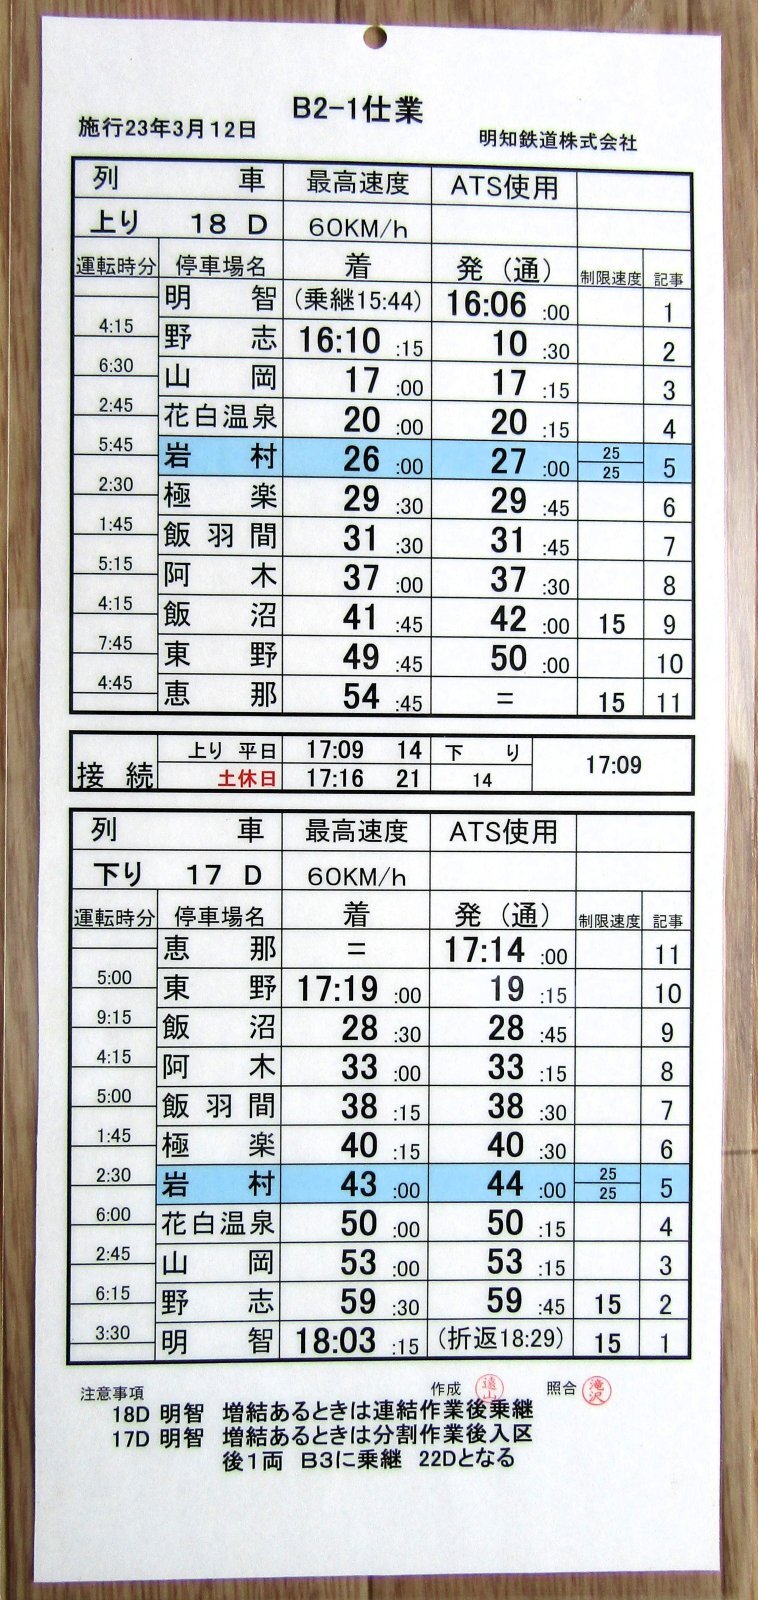 B2-1仕業
施行23年3月12日 明知鉄道株式会社
列車 最高速度 ATS使用
上り 18 D 60KM/h
運転時分 停車場名 着 発(通) 制限速度 記事
明智 (乗継15:44) 16:06 :00 1
4:15
野志 16:10 :15 10 :30 2
6:30
山岡 17 :00 17 :15 3
2:45
花白温泉 20 :00 20 :15 4
5:45
岩村 26 :00 27 :00 25 25 5
2:30
極楽 29 :30 29 :45 6
1:45
飯羽間 31 :30 31 :45 7
5:15
阿木 37 :00 37 :30 8
4:15
飯沼 41 :45 42 :00 15 9
7:45
東野 49 :45 50 :00 10
4:45
恵那 54 :45 = 15 11
接続 上り 平日 17:09 14 下り 17:09
土休日 17:16 21 14
列車 最高速度 ATS使用
下り 17 D 60KM/h
運転時分 停車場名 着 発(通) 制限速度 記事
恵那 = 17:14 :00 11
5:00
東野 17:19 :00 19 :15 10
9:15
飯沼 28 :30 28 :45 9
4:15
阿木 33 :00 33 :15 8
5:00
飯羽間 38 :15 38 :30 7
1:45
極楽 40 :15 40 :30 6
2:30
岩村 43 :00 44 :00 25 25 5
6:00
花白温泉 50 :00 50 :15 4
2:45
山岡 53 :00 53 :15 3
6:15
野志 59 :30 59 :45 15 2
3:30
明智 18:03 :15 (折返18:29) 15 1
注意事項 作成 遠山 照合 滝沢
18D 明智 増結あるときは連結作業後乗継
17D 明智 増結あるときは分割作業後入区
後1両 B3に乗継 22Dとなる